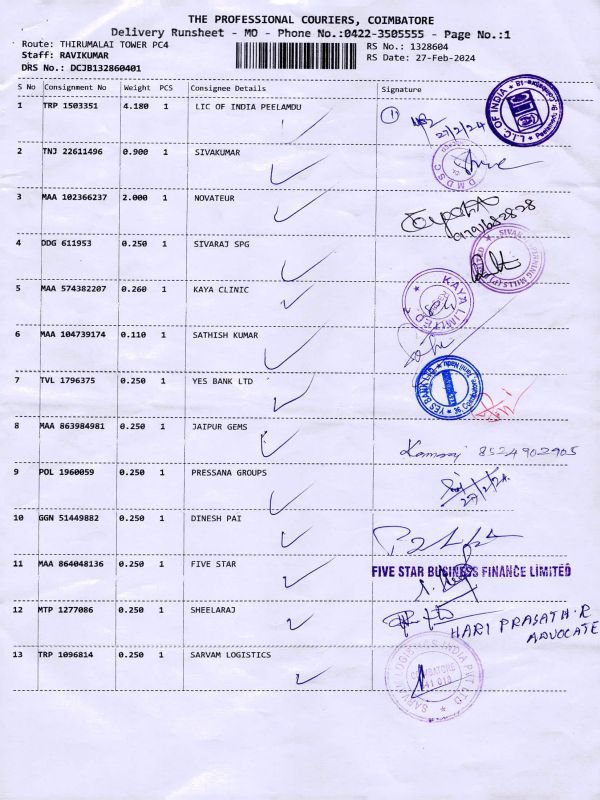 THE PROFESSIONAL COURIERS, COIMBATORE
Delivery Runsheet - MO - Phone No.:0422-3505555 - Page No.:1
Route: THIRUMALAI TOWER PC4 RS No.: 1328604
Staff: RAVIKUMAR RS Date: 27-Feb-2024
DRS No.: DCJB132860401
S No Consignment No Weight PCS Consignee Details Signature
1 TRP 1503351 4.180 1 LIC OF INDIA PEELAMDU
1 27/2/24
L.I.C. OF INDIA
2 TNJ 22611496 0.900 1 SIVAKUMAR
DMDSC
3 MAA 102366237 2.000 1 NOVATEUR
4 DDG 611953 0.250 1 SIVARAJ SPG
5 MAA 574382207 0.260 1 KAYA CLINIC
KAYA LIMITED
6 MAA 104739174 0.110 1 SATHISH KUMAR
7 TVL 1796375 0.250 1 YES BANK LTD
YES BANK LTD
8 MAA 863984981 0.250 1 JAIPUR GEMS
8524902905
9 POL 1960059 0.250 1 PRESSANA GROUPS
27/2/24
10 GGN 51449882 0.250 1 DINESH PAI
11 MAA 864048136 0.250 1 FIVE STAR
FIVE STAR BUSINESS FINANCE LIMITED
12 MTP 1277086 0.250 1 SHEELARAJ
HARI PRASATH.R
ADVOCATE
13 TRP 1096814 0.250 1 SARVAM LOGISTICS
SARVAM LOGISTICS INDIA PVT LTD
COIMBATORE